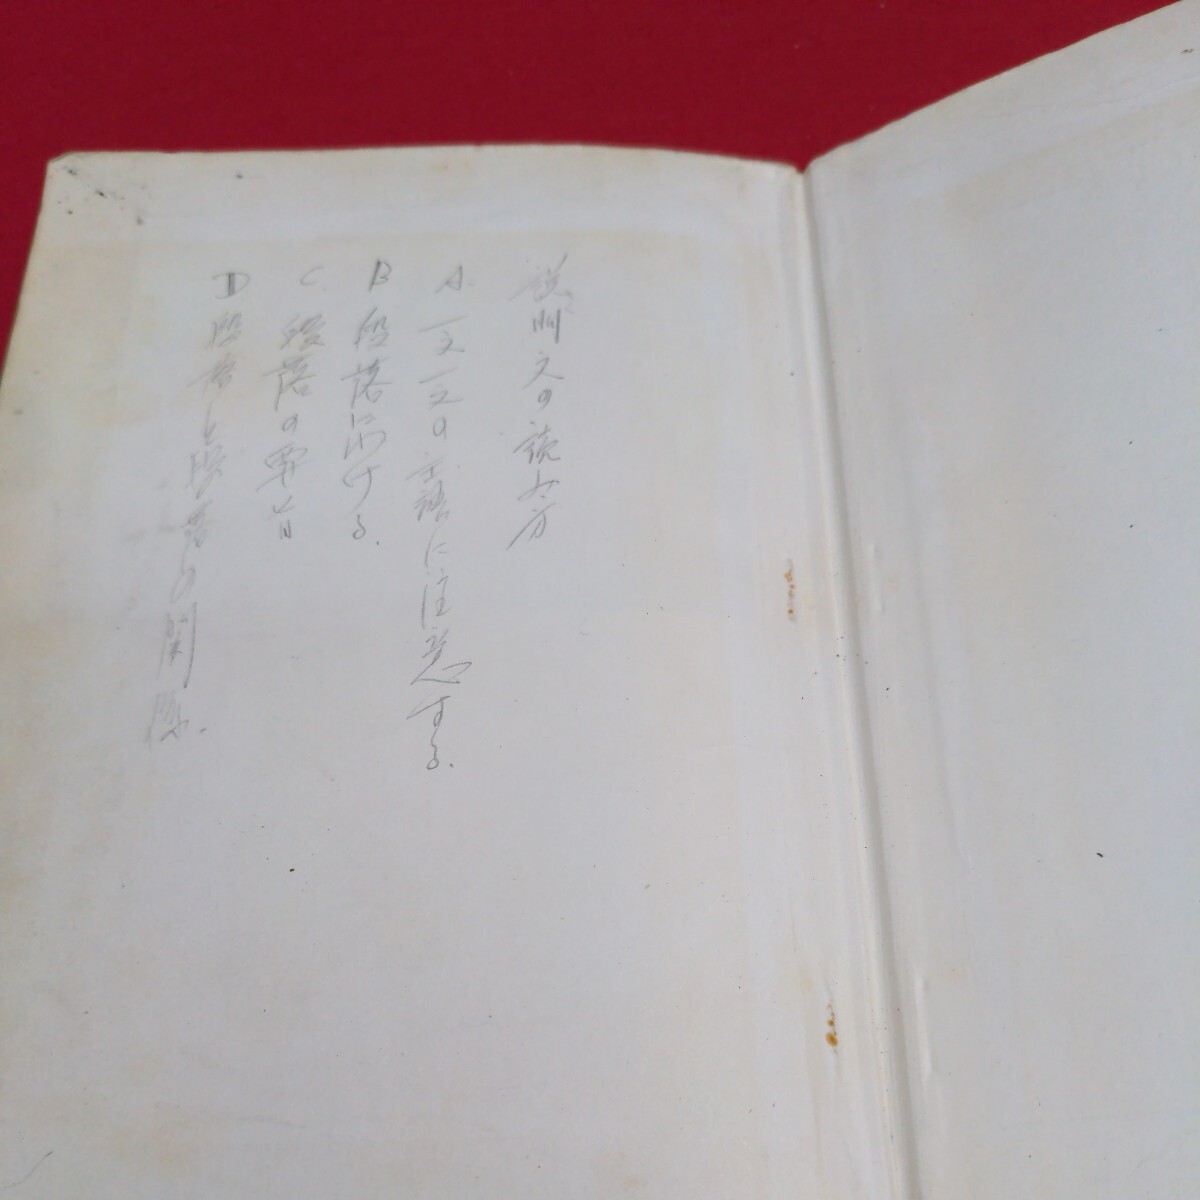 説明文の読み方
A. 一文一文の主語に注意する.
B 段落に分ける.
C. 段落の要旨
D 段落と段落の関係.